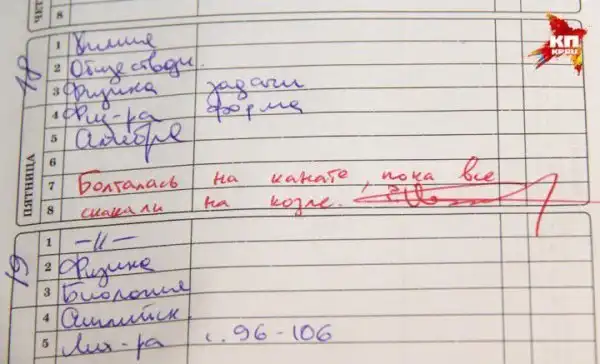 ЧЕТ
8
КП
КРЫМ
18
ПЯТНИЦА
1 Химия
2 Обществозн.
3 Физика задачи
4 Физ-ра форма
5 Алгебра
6
7 Болталась на канате, пока все
8 скакали на козле.
19
1 -//-
2 Физика
3 Биология
4 Английск
5 Лит-ра с. 96-106